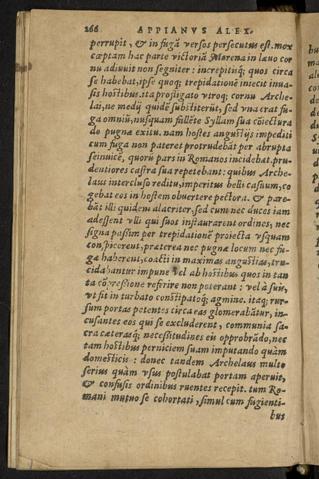 266 APPIANVS ALEX.
perrupit, & in fugã versos persecutus est. mox
cœptam hac parte victoriã Murena in læuo cor
nu adiuuit non segniter: increpitisq; quos circa
se habebat, ipse quoq; trepidationẽ iniecit inua-
sis hostibus. ita profligato vtroq; cornu Arche-
lai, ne medij quidẽ substiterũt, sed vna erat fu-
ga omniũ, nusquam fallẽte Syllam sua cõiectura
de pugnæ exitu. nam hostes angustijs impediti
cum fuga non pateret protrudebãt per abrupta
seinuicẽ, quorũ pars in Romanos incidebat. pru-
dentiores castra sua repetebant: quibus Arche-
laus intercluso reditu, imperitus belli casuum, co
gebat eos in hostem obuertere pectora. & pare-
bãt illi quidem alacriter, sed cum nec duces iam
adessent vlli qui suos instaurarent ordines, nec
signa passim per trepidationẽ proiecta vsquam
conspicerent, præterea nec pugnæ locum nec fu-
gæ haberent, coacti in maximas angustias, tru-
cidabantur impune vel ab hostibus quos in tan
ta cõpressione referire non poterant: vel à suis,
vt fit in turbato constipatoq; agmine. itaq; rur-
sum portas petentes circa eas glomerabãtur, in-
cusantes eos qui se excluderent, communia sa-
cra cæterasq; necessitudines eis opprobrãdo, nec
tam hostibus perniciem suam imputando quàm
domesticis: donec tandem Archelaus multo
serius quàm vsus postulabat portam aperuit,
& confusis ordinibus ruentes recepit. tum Ro-
mani mutuo se cohortati, simul cum fugienti-
bus